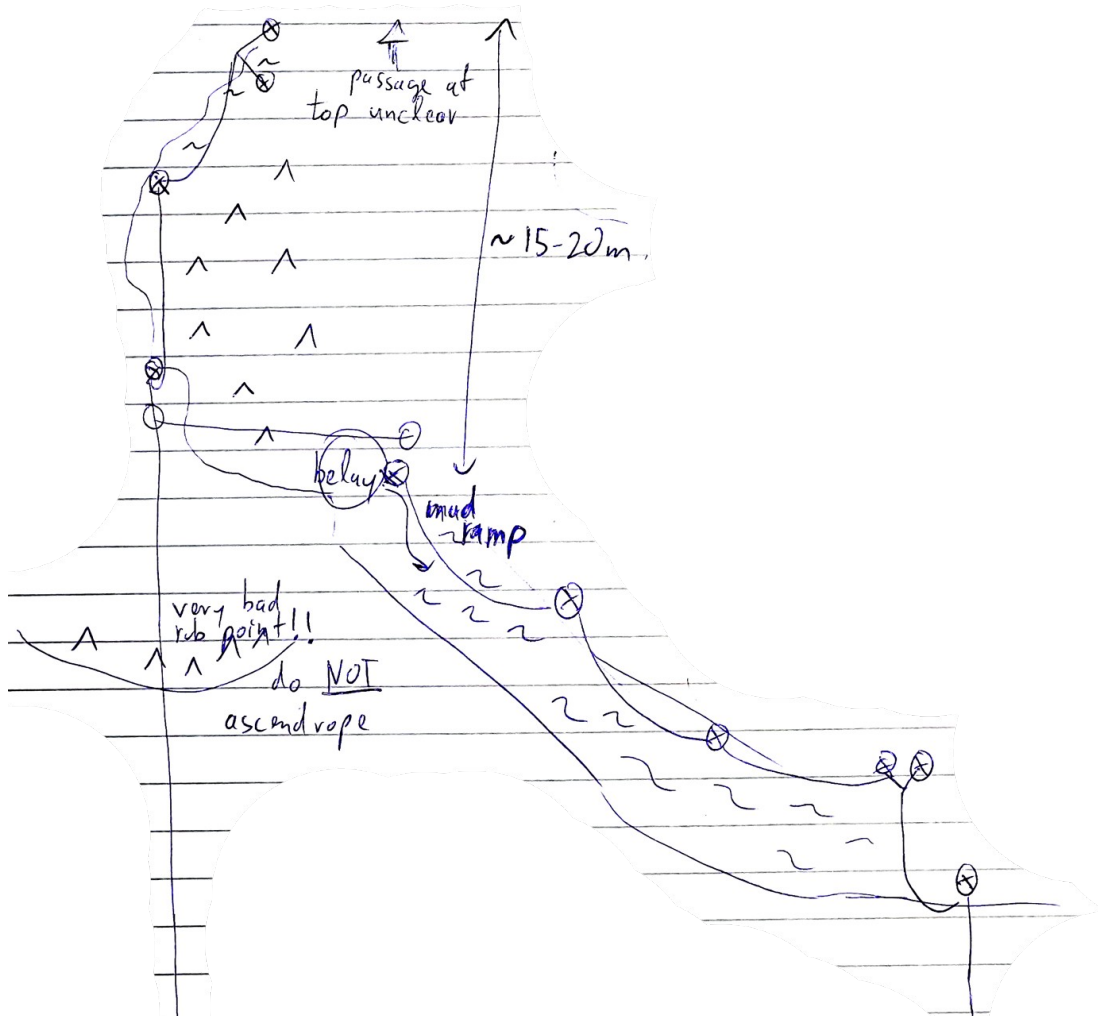 passage at
top unclear
~15-20m
belay
mud
ramp
very bad
rub point!!
do NOT
ascend rope